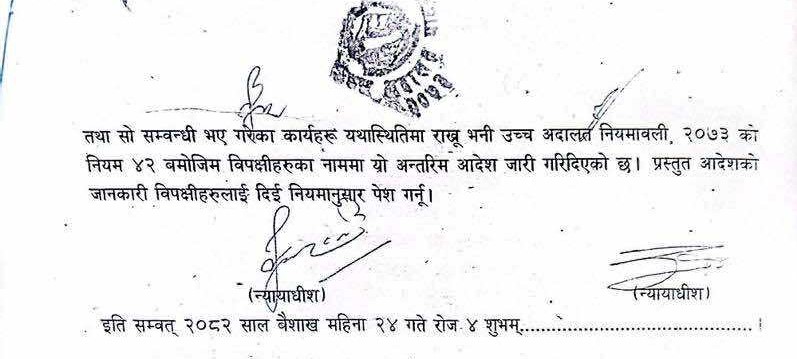 २०७३
तथा सो सम्वन्धी भए गरेका कार्यहरू यथास्थितिमा राखू भनी उच्च अदालत नियमावली, २०७३ को
नियम ४२ बमोजिम विपक्षीहरुका नाममा यो अन्तरिम आदेश जारी गरिदिएको छ। प्रस्तुत आदेशको
जानकारी विपक्षीहरुलाई दिई नियमानुसार पेश गर्नू।
(न्यायाधीश) (न्यायाधीश)
इति सम्वत् २०८२ साल वैशाख महिना २४ गते रोज ४ शुभम्............................................ ।